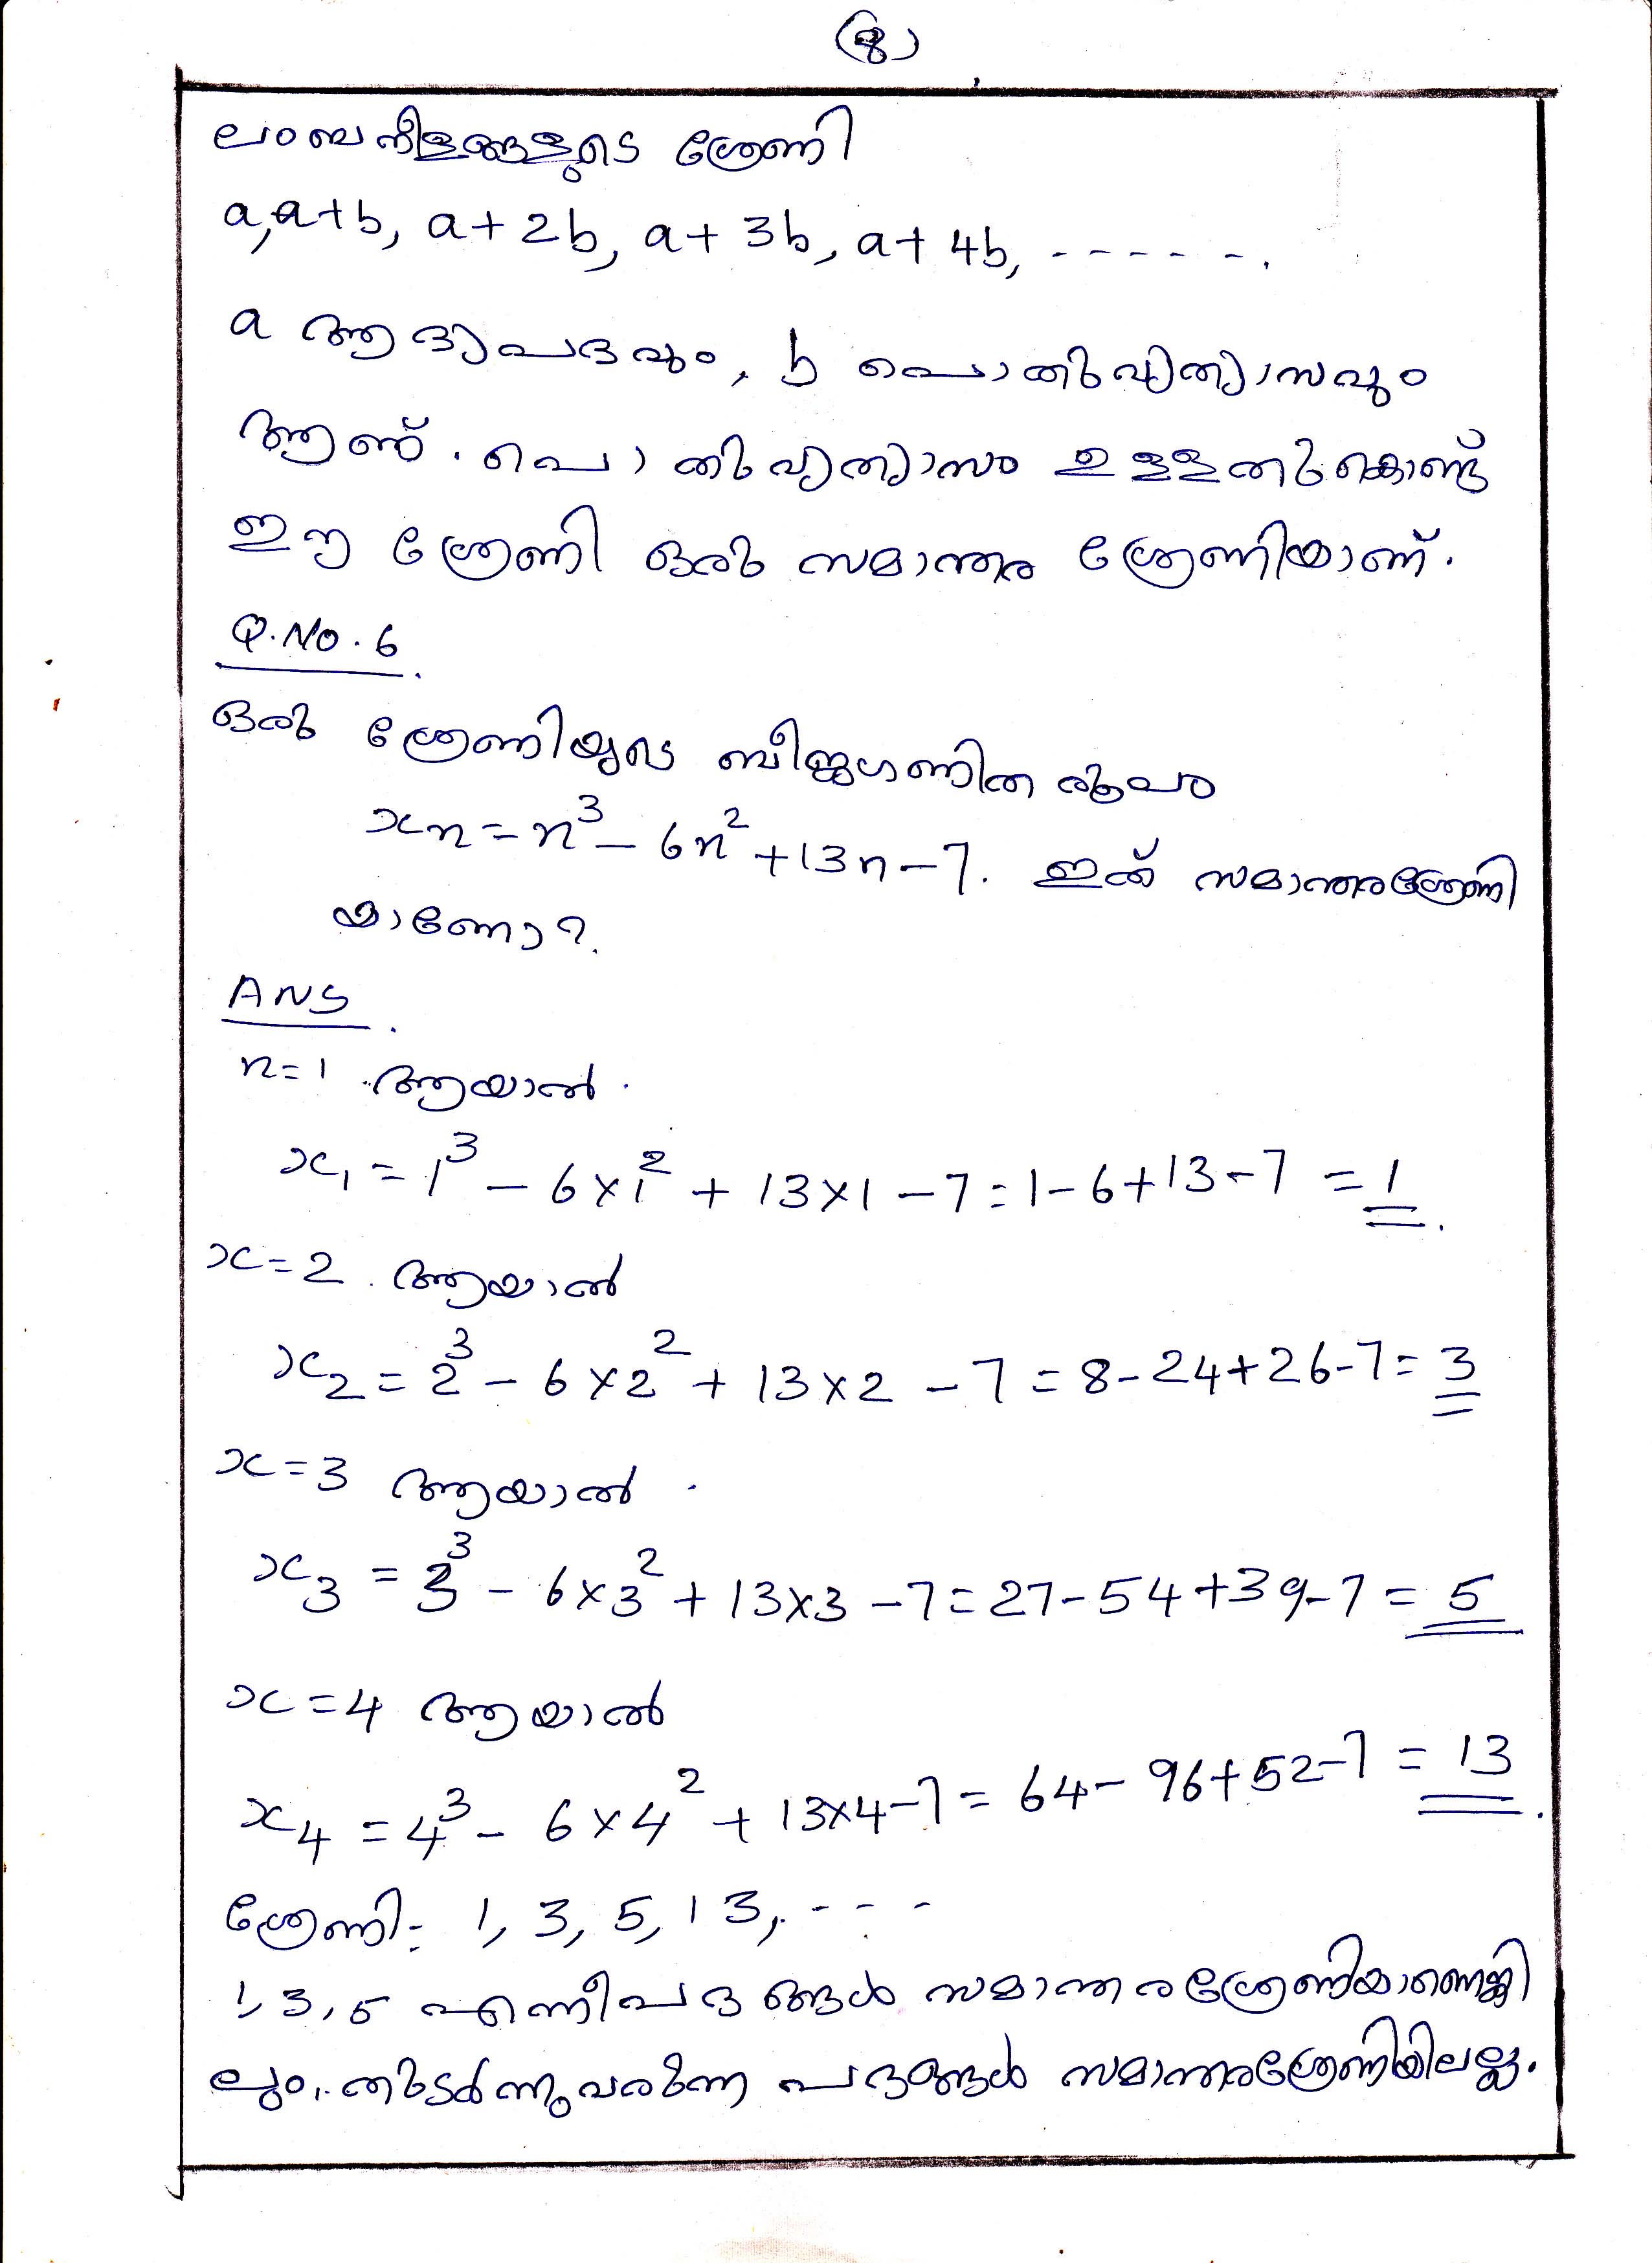 (8)
ലംബനീളങ്ങളുടെ ശ്രേണി
a, a+b, a+2b, a+3b, a+4b, ------.
a ആദ്യപദവും, b പൊതുവ്യത്യാസവും
ആണ്. പൊതുവ്യത്യാസം ഉള്ളതുകൊണ്ട്
ഈ ശ്രേണി ഒരു സമാന്തര ശ്രേണിയാണ്.
Q.No.6
ഒരു ശ്രേണിയുടെ ബീജഗണിത രൂപം
xn = n³ – 6n² + 13n – 7. ഇത് സമാന്തരശ്രേണി
യാണോ?
ANS
n=1 ആയാൽ
x₁ = 1³ – 6×1² + 13×1 – 7 = 1–6+13–7 = 1
x=2 ആയാൽ
x₂ = 2³ – 6×2² + 13×2 – 7 = 8–24+26–7 = 3
x=3 ആയാൽ
x₃ = 3³ – 6×3² + 13×3 – 7 = 27–54+39–7 = 5
x=4 ആയാൽ
x₄ = 4³ – 6×4² + 13×4–7 = 64–96+52–7 = 13
ശ്രേണി:- 1, 3, 5, 13, ---
1, 3, 5 എന്നീപദങ്ങൾ സമാന്തരശ്രേണിയാണെങ്കി
ലും, തുടർന്നുവരുന്ന പദങ്ങൾ സമാന്തരശ്രേണിയിലല്ല.